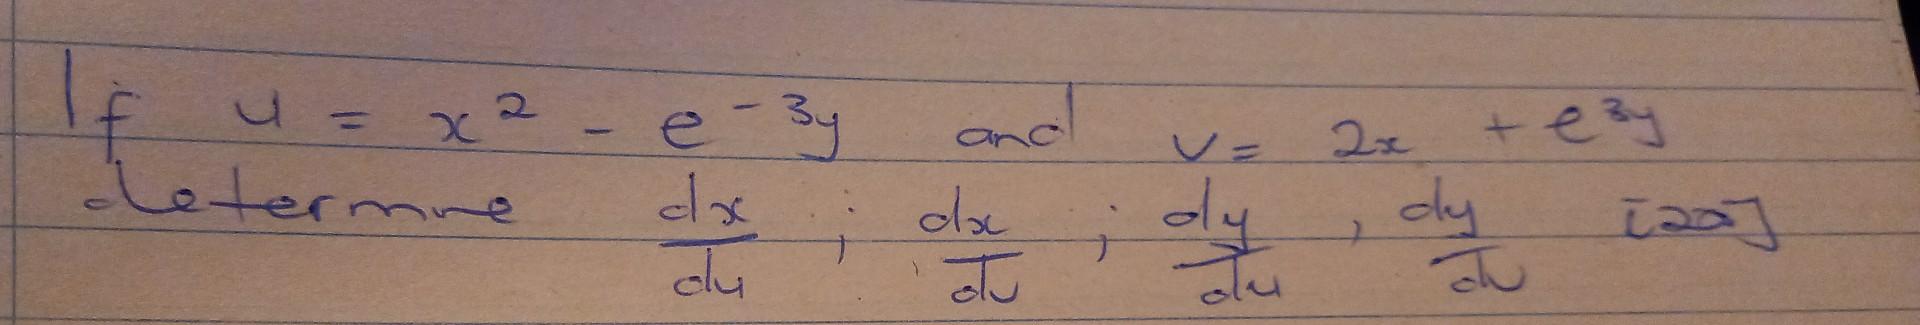 If u = x² - e⁻³ʸ and v = 2x + e³ʸ
determine dx/du ; dx/dv ; dy/du , dy/dv [20]